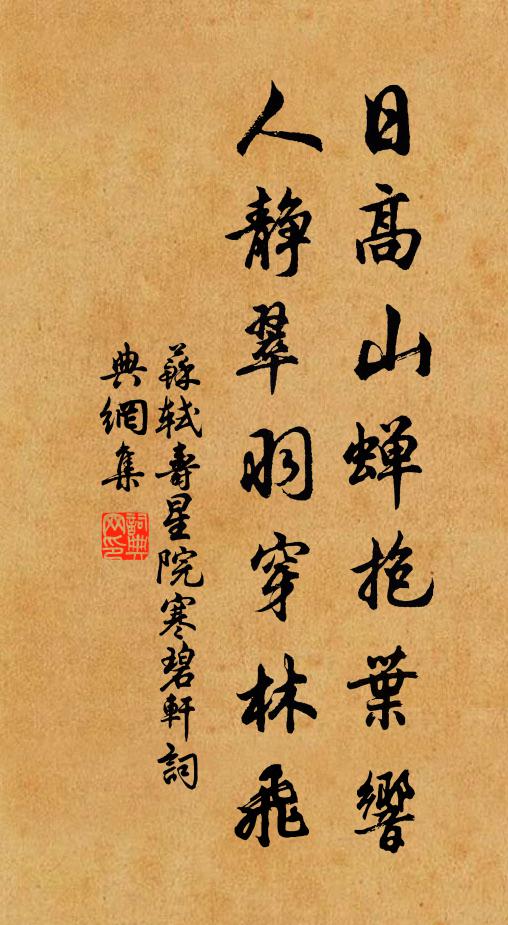 日高山蝉抱葉響
人靜翠羽穿林飛
蘇軾壽星院寒碧軒詞
典網集
詞典
网印